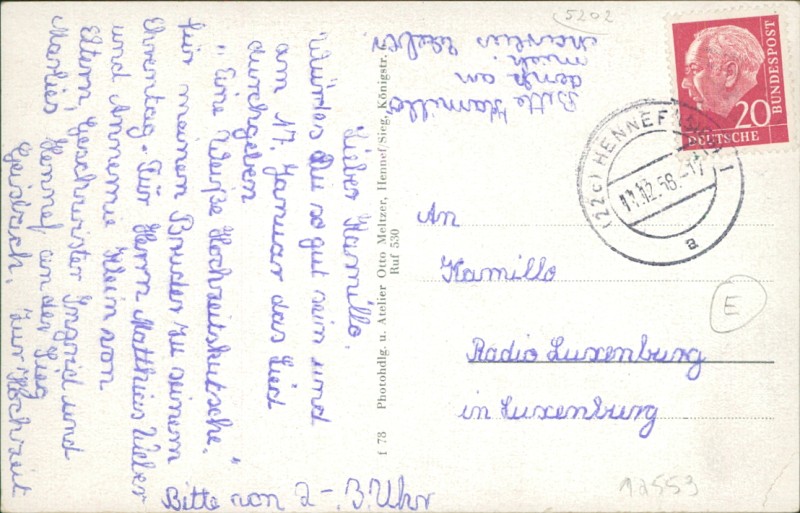 Lieber Kamillo.
Würdes Du so gut sein und
am 17. Januar das Lied
durchgeben
" Eine Weiße Hochzeitskutsche. "
für meinen Bruder zu seinem
Ehrentag. Für Herrn Matthies Weber
und Annemie Klein von
Eltern, Geschwister Ingrid und
Marlies Hennef an der Sieg
Geisbach. zur Hochzeit
Bitte von 2-. 3. Uhr
Bitte Kamillo
denk an
mich
Weber
f 78 Photohdlg. u. Atelier Otto Meltzer, Hennef/Sieg, Königstr.
Ruf 530
5202
20
DEUTSCHE
BUNDESPOST
(22c) HENNEF
11.12.56.-17
a
An
Kamillo
Radio Luxenburg
in Luxenburg
E
12553